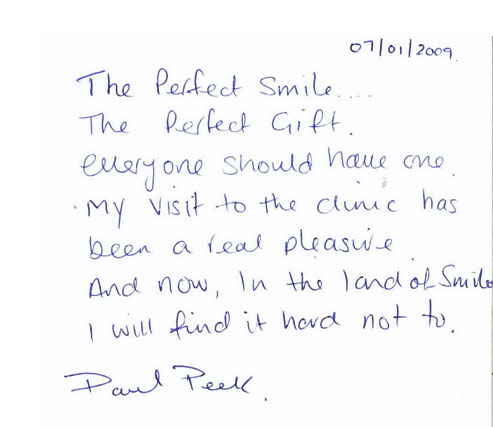 07/01/2009.
The Perfect Smile....
The Perfect Gift.
everyone should have one.
My visit to the clinic has
been a real pleasure
And now, In the land of Smile
I will find it hard not to.
Paul Peek.